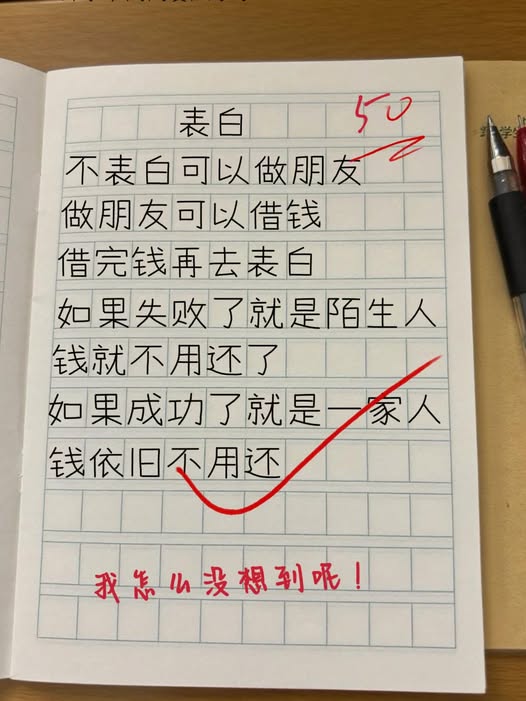 表白
50
不表白可以做朋友
做朋友可以借钱
借完钱再去表白
如果失败了就是陌生人
钱就不用还了
如果成功了就是一家人
钱依旧不用还
我怎么没想到呢！